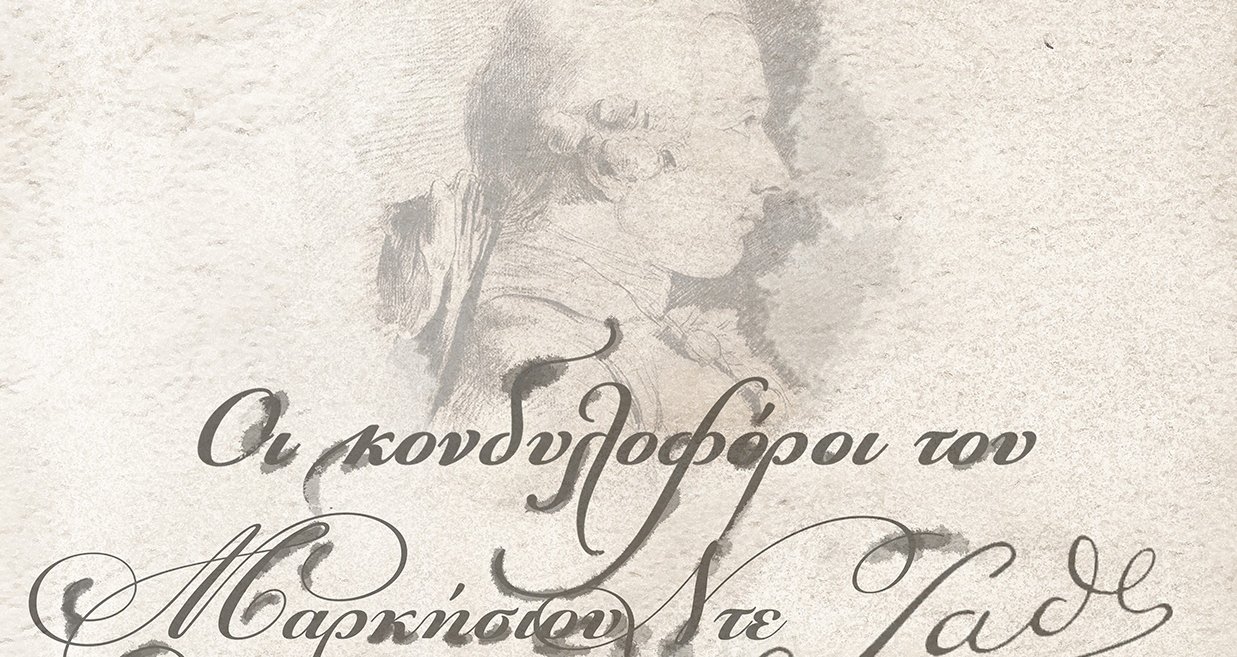 Οι κονδυλοφόροι του
Μαρκήσιου Ντε Σαδ